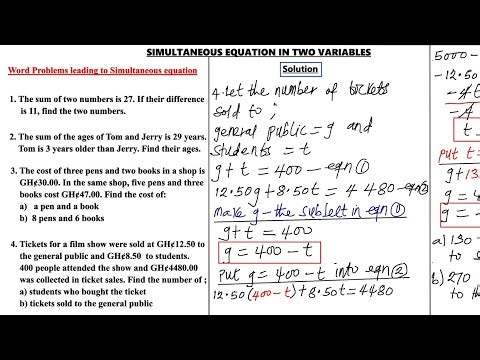 SIMULTANEOUS EQUATION IN TWO VARIABLES
Word Problems leading to Simultaneous equation
1. The sum of two numbers is 27. If their difference
is 11, find the two numbers.
2. The sum of the ages of Tom and Jerry is 29 years.
Tom is 3 years older than Jerry. Find their ages.
3. The cost of three pens and two books in a shop is
GH¢30.00. In the same shop, five pens and three
books cost GH¢47.00. Find the cost of:
a) a pen and a book
b) 8 pens and 6 books
4. Tickets for a film show were sold at GH¢12.50 to
the general public and GH¢8.50 to students.
400 people attended the show and GH¢4480.00
was collected in ticket sales. Find the number of ;
a) students who bought the ticket
b) tickets sold to the general public
Solution
4. Let the number of tickets
sold to ;
general public = g and
students = t
g + t = 400 - eqn ①
12.50g + 8.50t = 4480 - eqn ②
Make g - the subject in eqn ①
g + t = 400
g = 400 - t
put g = 400 - t into eqn ②
12.50(400 - t) + 8.50t = 4480
5000 -
-12.50
-4t
-4
t =
put t =
g + 13
g =
g =
a) 130 -
to
b) 270
to the